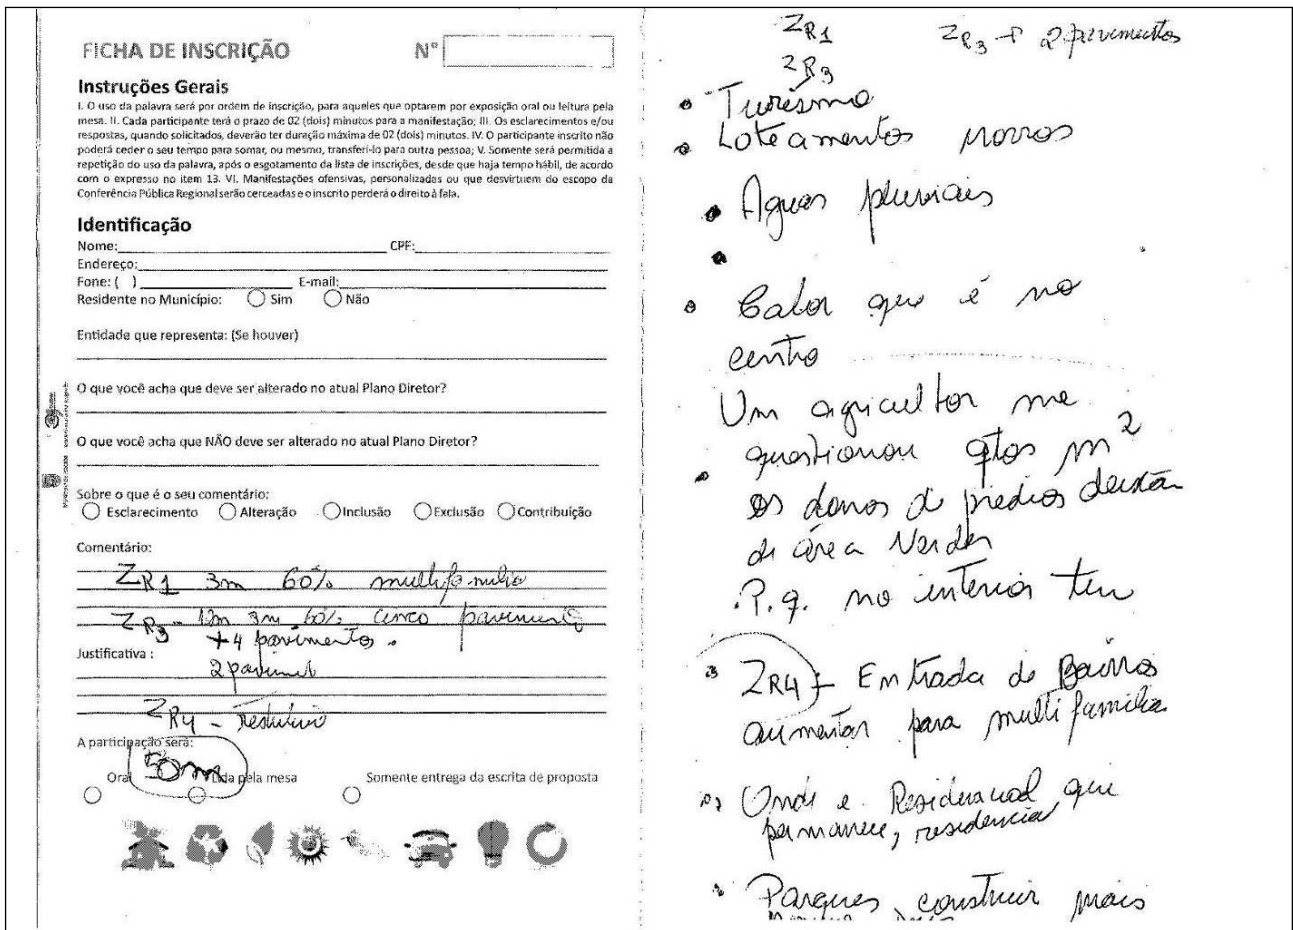 FICHA DE INSCRIÇÃO
N°
Instruções Gerais
I. O uso da palavra será por ordem de inscrição, para aqueles que optarem por exposição oral ou leitura pela
mesa. II. Cada participante terá o prazo de 02 (dois) minutos para a manifestação; III. Os esclarecimentos e/ou
respostas, quando solicitados, deverão ter duração máxima de 02 (dois) minutos. IV. O participante inscrito não
poderá ceder o seu tempo para somar, ou mesmo, transferi-lo para outra pessoa; V. Somente será permitida a
repetição do uso da palavra, após o esgotamento da lista de inscrições, desde que haja tempo hábil, de acordo
com o expresso no item 13. VI. Manifestações ofensivas, personalizadas ou que desvirtuem do escopo da
Conferência Pública Regional serão cerceadas e o inscrito perderá o direito à fala.
Identificação
Nome: CPF:
Endereço:
Fone: ( ) E-mail:
Residente no Município: Sim Não
Entidade que representa: (Se houver)
O que você acha que deve ser alterado no atual Plano Diretor?
O que você acha que NÃO deve ser alterado no atual Plano Diretor?
Sobre o que é o seu comentário:
Esclarecimento Alteração Inclusão Exclusão Contribuição
Comentário:
ZR1 3m 60%
ZR3 - 3m 60% cinco
+4 pavimentos.
Justificativa :
ZR4 -
A participação será:
50m
Oral Lida pela mesa Somente entrega da escrita de proposta
ZR1
ZR3
ZR3 2 pavimentos
• Turismo
• Loteamentos novos
• Aguas pluviais
•
• Calor que é no
centro
Um agricultor me
• questionou qtos m²
os donos de predios deixão
de área Verde
P.q. no interior tem
• ZR4 - Entrada de Bairros
aumentar para multi familia
• Onde e Residencial que
permanece, residencia
• Parques construir mais